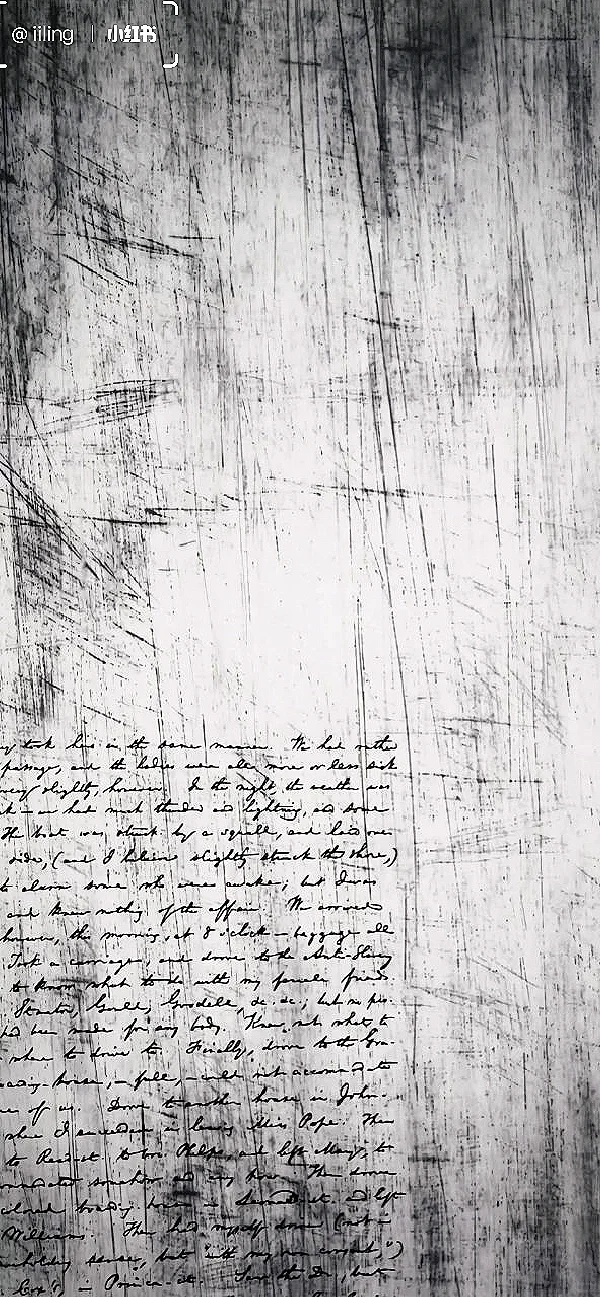 @ iiling | 小红书
took his in the same manner. We had rather
passage, and the ladies were all more or less sick
very slightly, however. In the night, the weather was
had much thunder and lighting, and some
The boat was struck by a squall, and laid over
side, (and I believe slightly struck the shore,)
to alarm some who were awake; but I was
and knew nothing of the affair. We arrived
however, this morning, at 8 o'clock — baggage all
Took a carriage, and drove to the Anti-Slavery
to know what to do with my female friends
Stanton, Gould, Goodell, &c. &c.; but no pro-
had been made for any body. Knew not what to
where to drive to. Finally, drove to the Gra-
house, — full, — could not accommodate
of us. Drove to another house in John-
where I succeeded in leaving Miss Pope. Then
to Read st. to Phelps, and left Mary, to
somehow and any how. Then drove
colored boarding house in st. and left
Williams. Then had myself (not in
sense, but "with my own consent,")
Cox's, — st. Saw the Dr., but